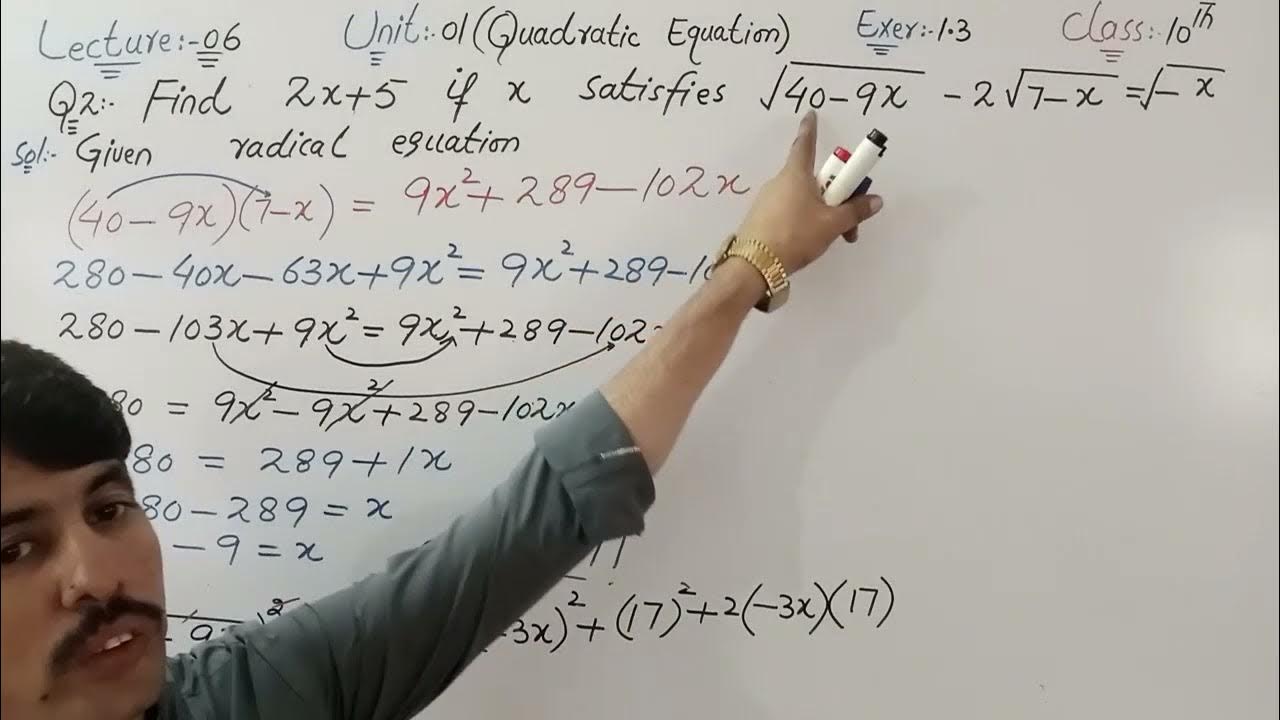 Lecture:-06 Unit:-01(Quadratic Equation) Exer:-1.3 Class:-10th
Q2:- Find 2x+5 if x satisfies √(40-9x) - 2√(7-x) = √(-x)
Sol:- Given radical equation
(40-9x)(7-x) = 9x²+289-102x
280-40x-63x+9x² = 9x²+289-10
280-103x+9x² = 9x²+289-102
80 = 9x²-9x²+289-102x
80 = 289+1x
80-289 = x
-9 = x
-3x)²+(17)²+2(-3x)(17)